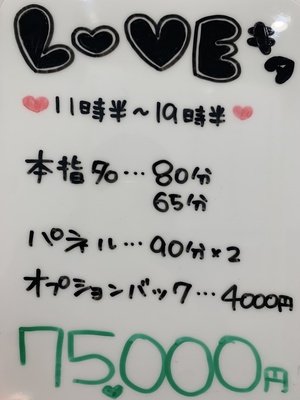 LOVEギタ
11時半～19時半
本指%…80分
65分
パネル…90分×2
オプションバック…4000円
75,000円